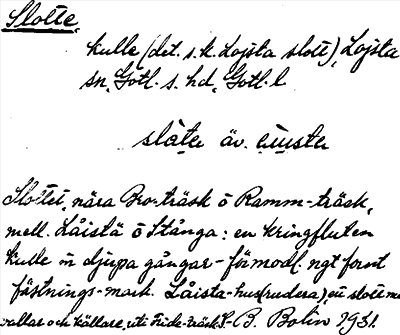 Slotte,
kulle (det. s.k. Lojsta slott), Lojsta
sn, Gotl. s. hd, Gotl. l
slåte äv.
Slottet, nära Broträsk o Ramm-träsk,
mell. Låistä o Stånga: en kringfluten
kulle m djupa gångar - förmodl. ngt fornt
fästnings-mark. Låista-hus (rudera) en slott m
vallar och källare, uti Fride-träsk P-B. Bolin 1931